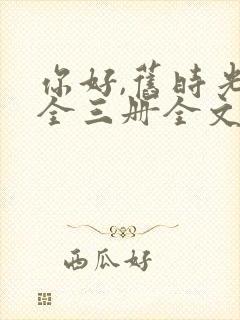 你好,舊時光
全三册全文
西瓜好